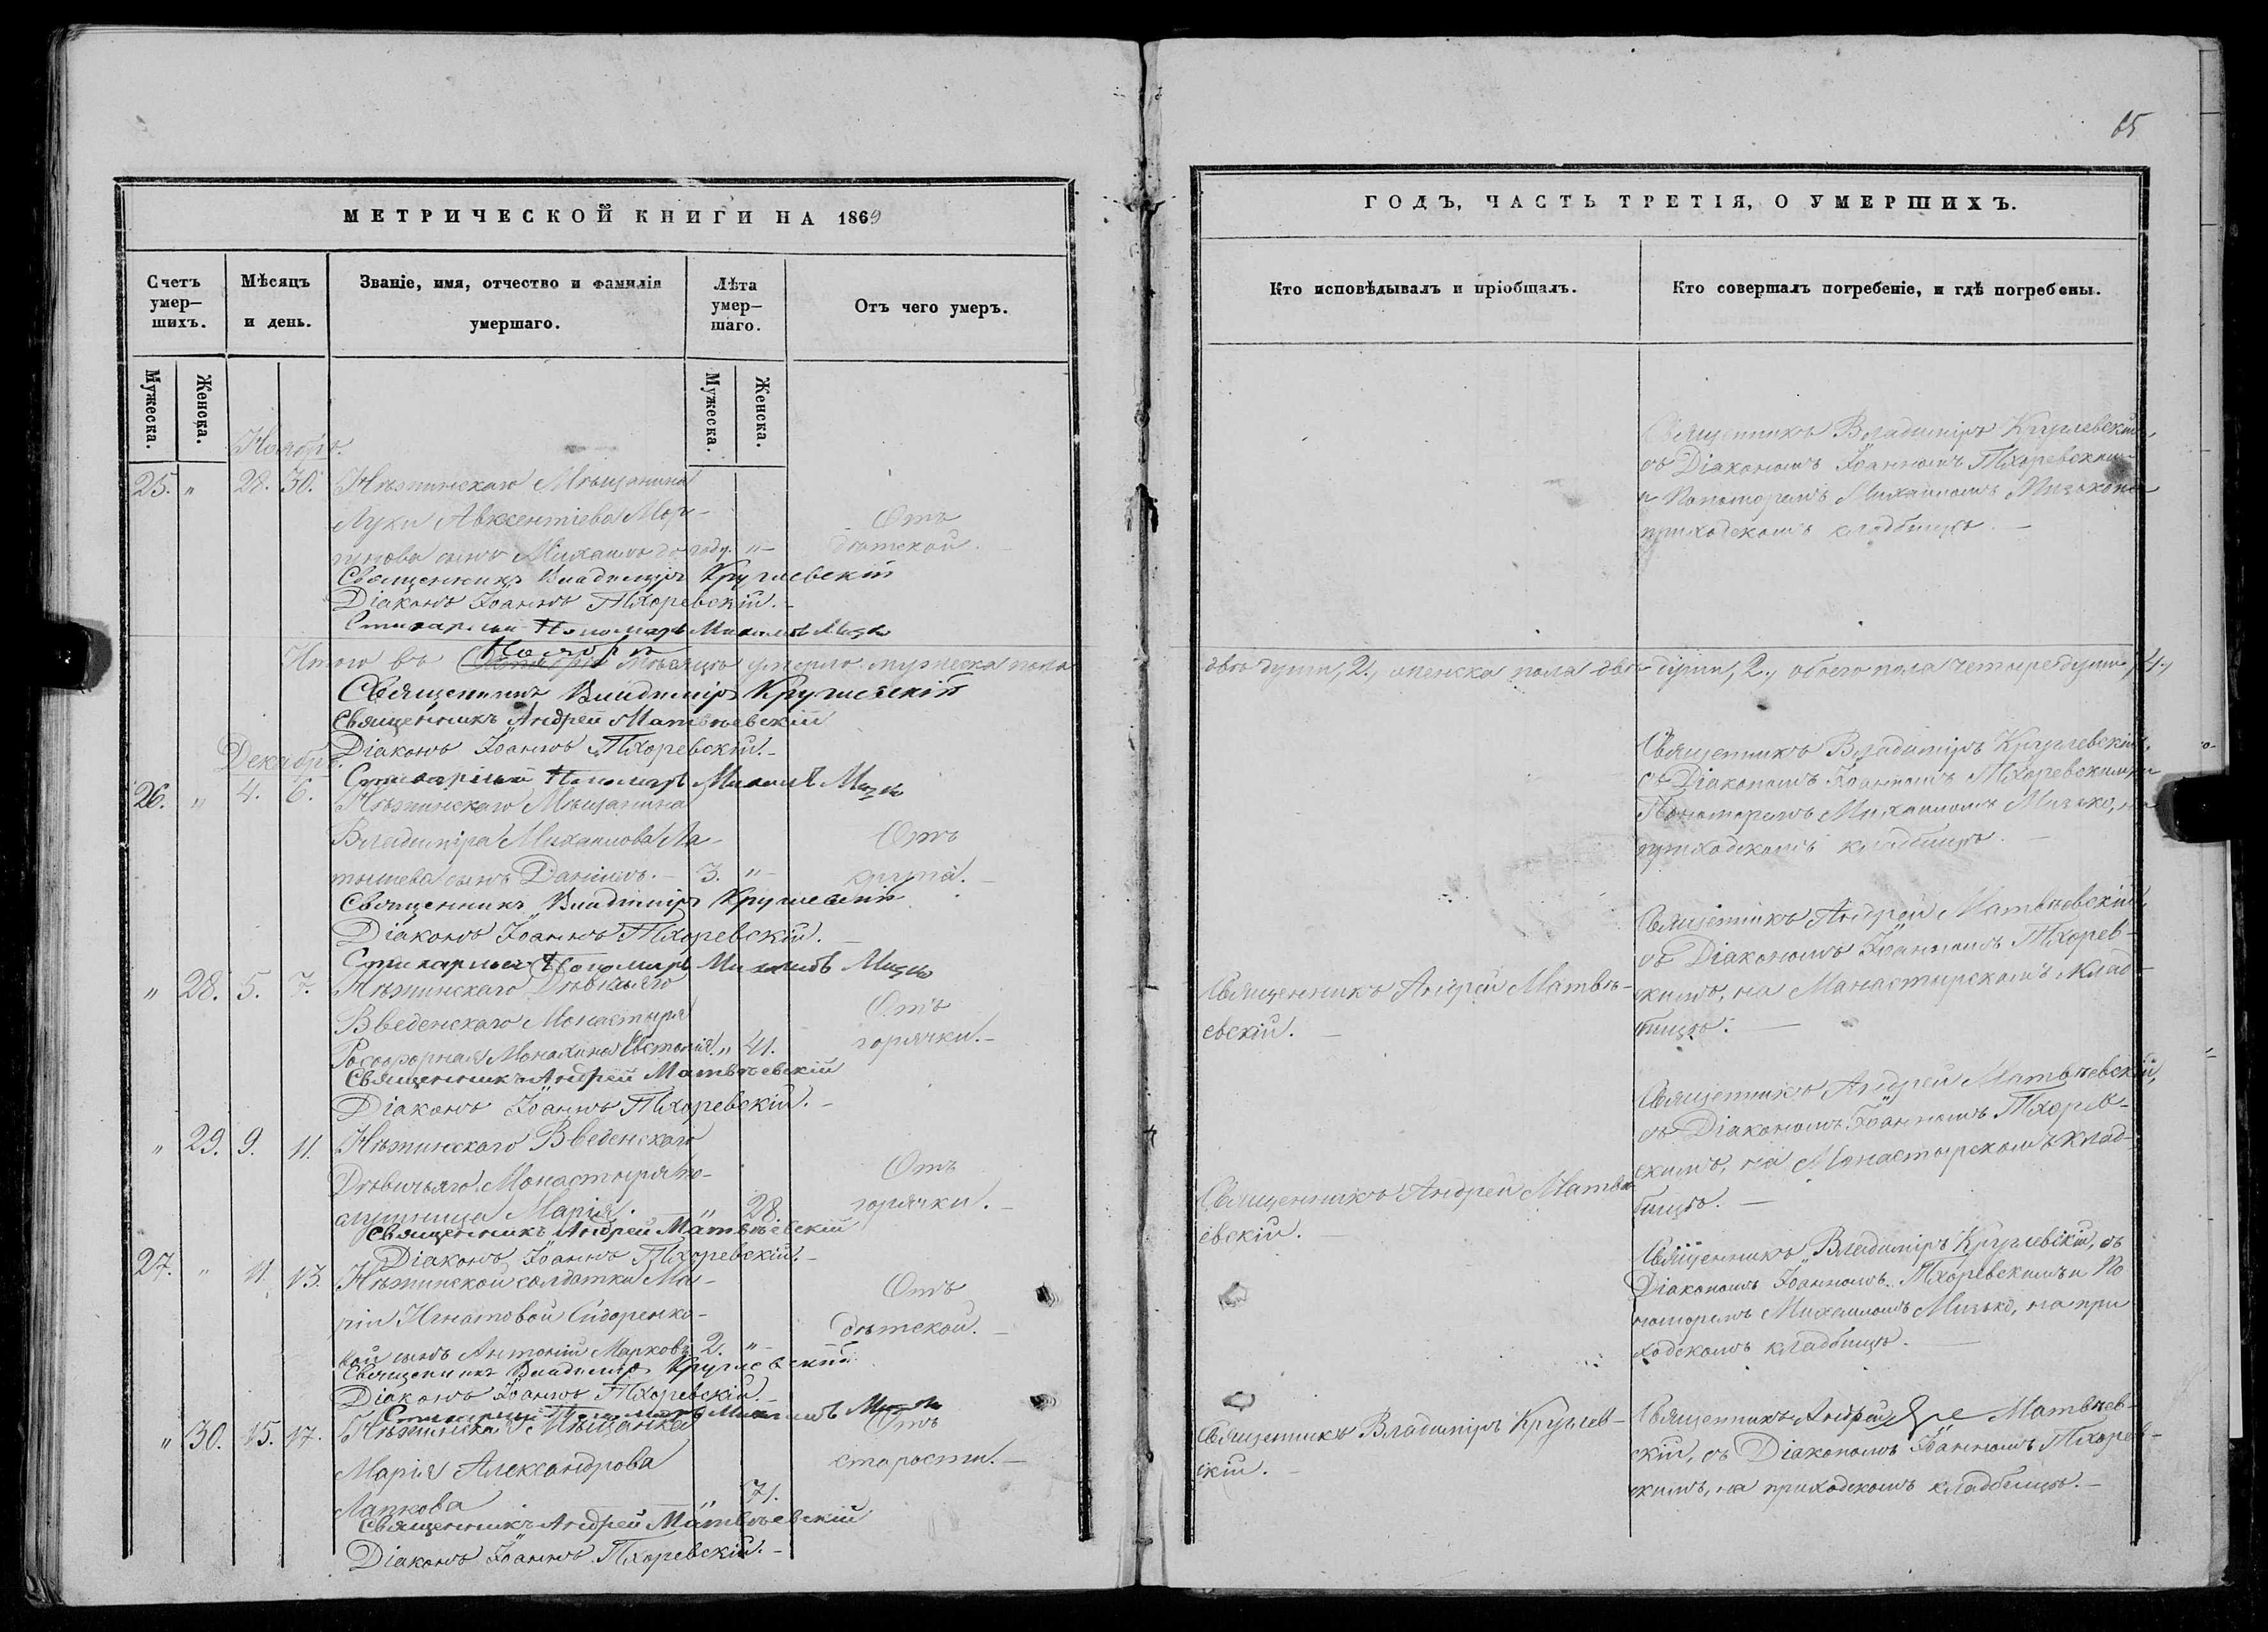 65
МЕТРИЧЕСКОЙ КНИГИ НА 1869
ГОДЪ, ЧАСТЬ ТРЕТІЯ, О УМЕРШИХЪ.
Счетъ умер-шихъ.
Мѣсяцъ и день.
Званіе, имя, отчество и фамилія умершаго.
Лѣта умер-шаго.
Отъ чего умеръ.
Кто исповѣдывалъ и пріобщалъ.
Кто совершалъ погребеніе, и гдѣ погребены.
Мужеска.
Женска.
Мужеска.
Женска.
Ноябрь.
25. " 28. 30. Нѣжинскаго Мѣщанина
Луки Авксентіева
сынъ Михаилъ до году. "
Отъ
дѣтской.
Священникъ Владиміръ Круглевскій
съ Діакономъ Іоанномъ Тхоревскимъ
и Пономаремъ Михаиломъ
приходскомъ кладбищѣ. —
Священникъ Владиміръ Круглевскій
Діаконъ Іоаннъ Тхоревскій. -
Стихарный Пономарь Михаилъ
Итого въ Ноябрѣ мѣсяцѣ умерло мужеска пола
двѣ души, 2., женска пола двѣ души, 2., обоего пола четыре души, 4.,
Священникъ Владиміръ Круглевскій
Священникъ Андрей Матвѣевскій
Діаконъ Іоаннъ Тхоревскій. -
Стихарный Пономарь Михаилъ
Декабрь.
26. " 4. 6. Нѣжинскаго Мѣщанина
Владиміра Михаилова Ла-
тышева сынъ Даніилъ. - 3. "
Отъ
крупа. -
Священникъ Владиміръ Круглевскій,
съ Діакономъ Іоанномъ Тхоревскимъ и
Пономаремъ Михаиломъ Мизько, на
приходскомъ кладбищѣ. —
Священникъ Владиміръ Круглевскій
Діаконъ Іоаннъ Тхоревскій. -
Стихарный Пономарь Михаилъ
" 28. 5. 7. Нѣжинскаго Дѣвичьяго
Введенскаго Монастыря
Рясофорная Монахиня " 41.
Отъ
горячки. -
Священникъ Андрей Матвѣ-
евскій. —
Священникъ Андрей Матвѣевскій,
съ Діакономъ Іоанномъ Тхорев-
скимъ, на Манастырскомъ клад-
бищѣ. —
Священникъ Андрей Матвѣевскій
Діаконъ Іоаннъ Тхоревскій. -
" 29. 9. 11. Нѣжинскаго Введенскаго
Дѣвичьяго Монастыря по-
слушница Марія. " 28.
Отъ
горячки. -
Священникъ Андрей Матвѣ-
евскій. —
Священникъ Андрей Матвѣевскій,
съ Діакономъ Іоанномъ Тхорев-
скимъ, на Монастырскомъ клад-
бищѣ. —
Священникъ Андрей Матвѣевскій
Діаконъ Іоаннъ Тхоревскій. -
27. " 11. 13. Нѣжинской солдатки Ма-
ріи Игнатовой Сидоренко-
вой сынъ Антоній Марковъ 2. "
Отъ
дѣтской. -
Священникъ Владиміръ Круглевскій, съ
Діакономъ Іоанномъ Тхоревскимъ и По
номаремъ Михаиломъ Мизько, на при
ходскомъ кладбищѣ. —
Священникъ Владиміръ Круглевскій
Діаконъ Іоаннъ Тхоревскій. -
Стихарный Пономарь Михаилъ
" 30. 15. 17. Нѣжинская Мѣщанка
Марія Александрова
Лапкова " 71.
Отъ
старости. -
Священникъ Владиміръ Круглев-
скій. -
Священникъ Андрей Матвѣев-
скій, съ Діакономъ Іоанномъ Тхорев-
скимъ, на приходскомъ кладбищѣ. -
Священникъ Андрей Матвѣевскій
Діаконъ Іоаннъ Тхоревскій. -